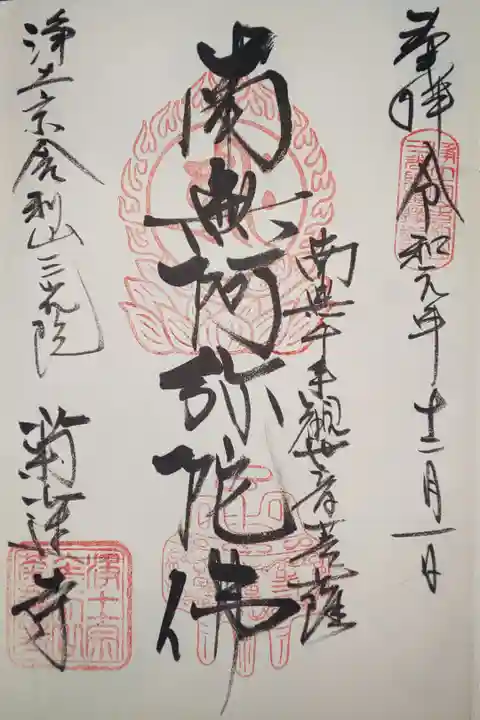 奉拝 令和元年十二月一日
南無千手観世音菩薩
南無阿弥陀佛
浄土宗舎利山三光院
菊蓮寺
浄土宗